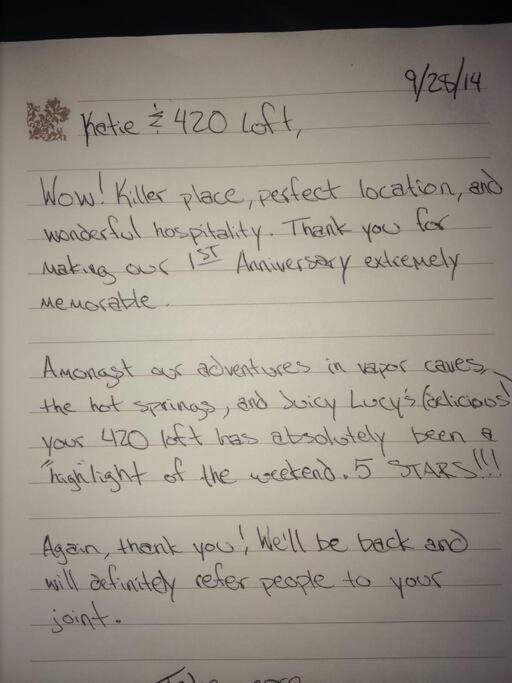 9/28/14
Katie & 420 Loft,
Wow! Killer place, perfect location, and
wonderful hospitality. Thank you for
making our 1ST Anniversary extremely
memorable.
Amongst our adventures in vapor caves,
the hot springs, and Juicy Lucy's (delicious)
your 420 loft has absolutely been a
"high"light of the weekend. 5 STARS!!!
Again, thank you! We'll be back and
will definitely refer people to your
joint.